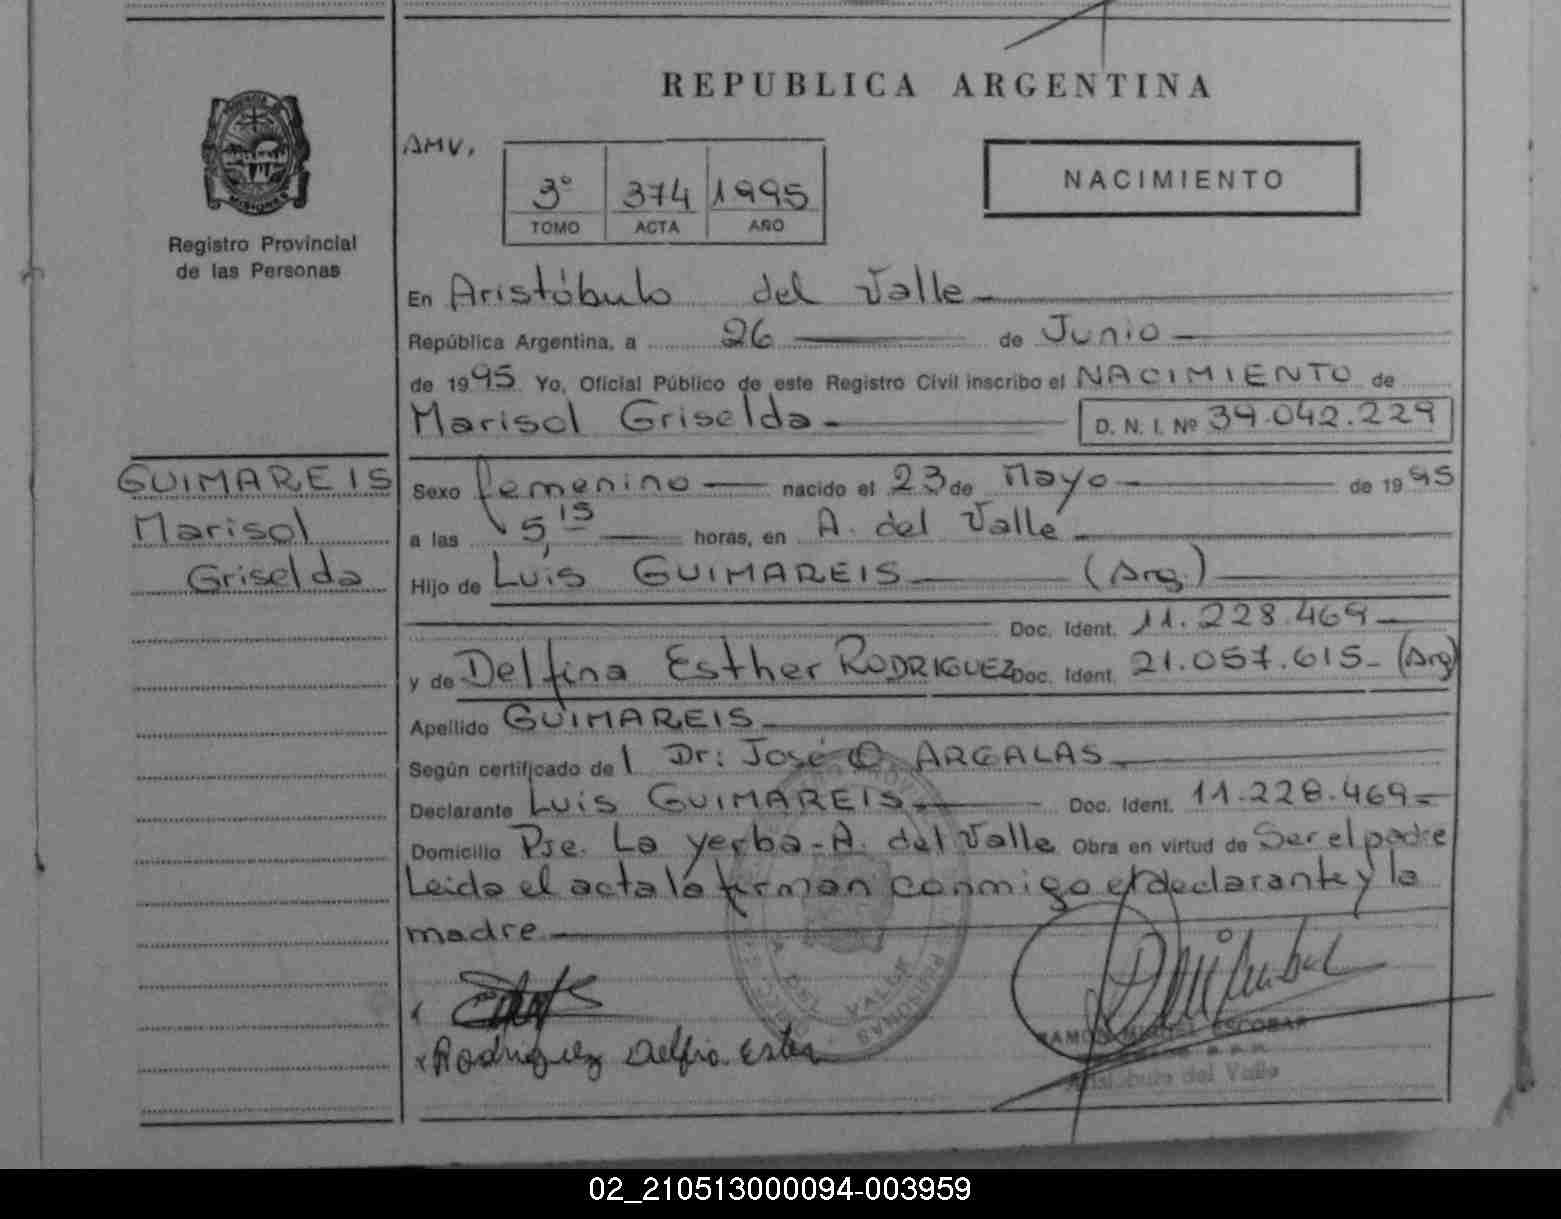 REPUBLICA ARGENTINA
MISIONES
Registro Provincial
de las Personas
AMV.
3° 374 1995
TOMO ACTA AÑO
NACIMIENTO
En Aristóbulo del Valle
República Argentina, a 26 de Junio
de 1995 Yo, Oficial Público de este Registro Civil inscribo el NACIMIENTO de
Marisol Griselda D. N. I. Nº 39.042.229
GUIMAREIS
Marisol
Griselda
Sexo femenino nacido el 23 de Mayo de 1995
a las 5,15 horas, en A. del Valle
Hijo de Luis GUIMAREIS (Arg.)
Doc. Ident. 11.228.469
y de Delfina Esther RODRIGUEZ Doc. Ident. 21.057.615 (Arg)
Apellido GUIMAREIS
Según certificado del Dr: José O ARGALAS
Declarante Luis GUIMAREIS Doc. Ident. 11.228.469
Domicilio Pje. La yerba - A. del Valle Obra en virtud de Ser el padre
Leida el acta la firman conmigo el declarante y la
madre
x Rodriguez Delfia Ester
RAMON MIGUEL ESCOBAR
Aristobulo del Valle
02_210513000094-003959